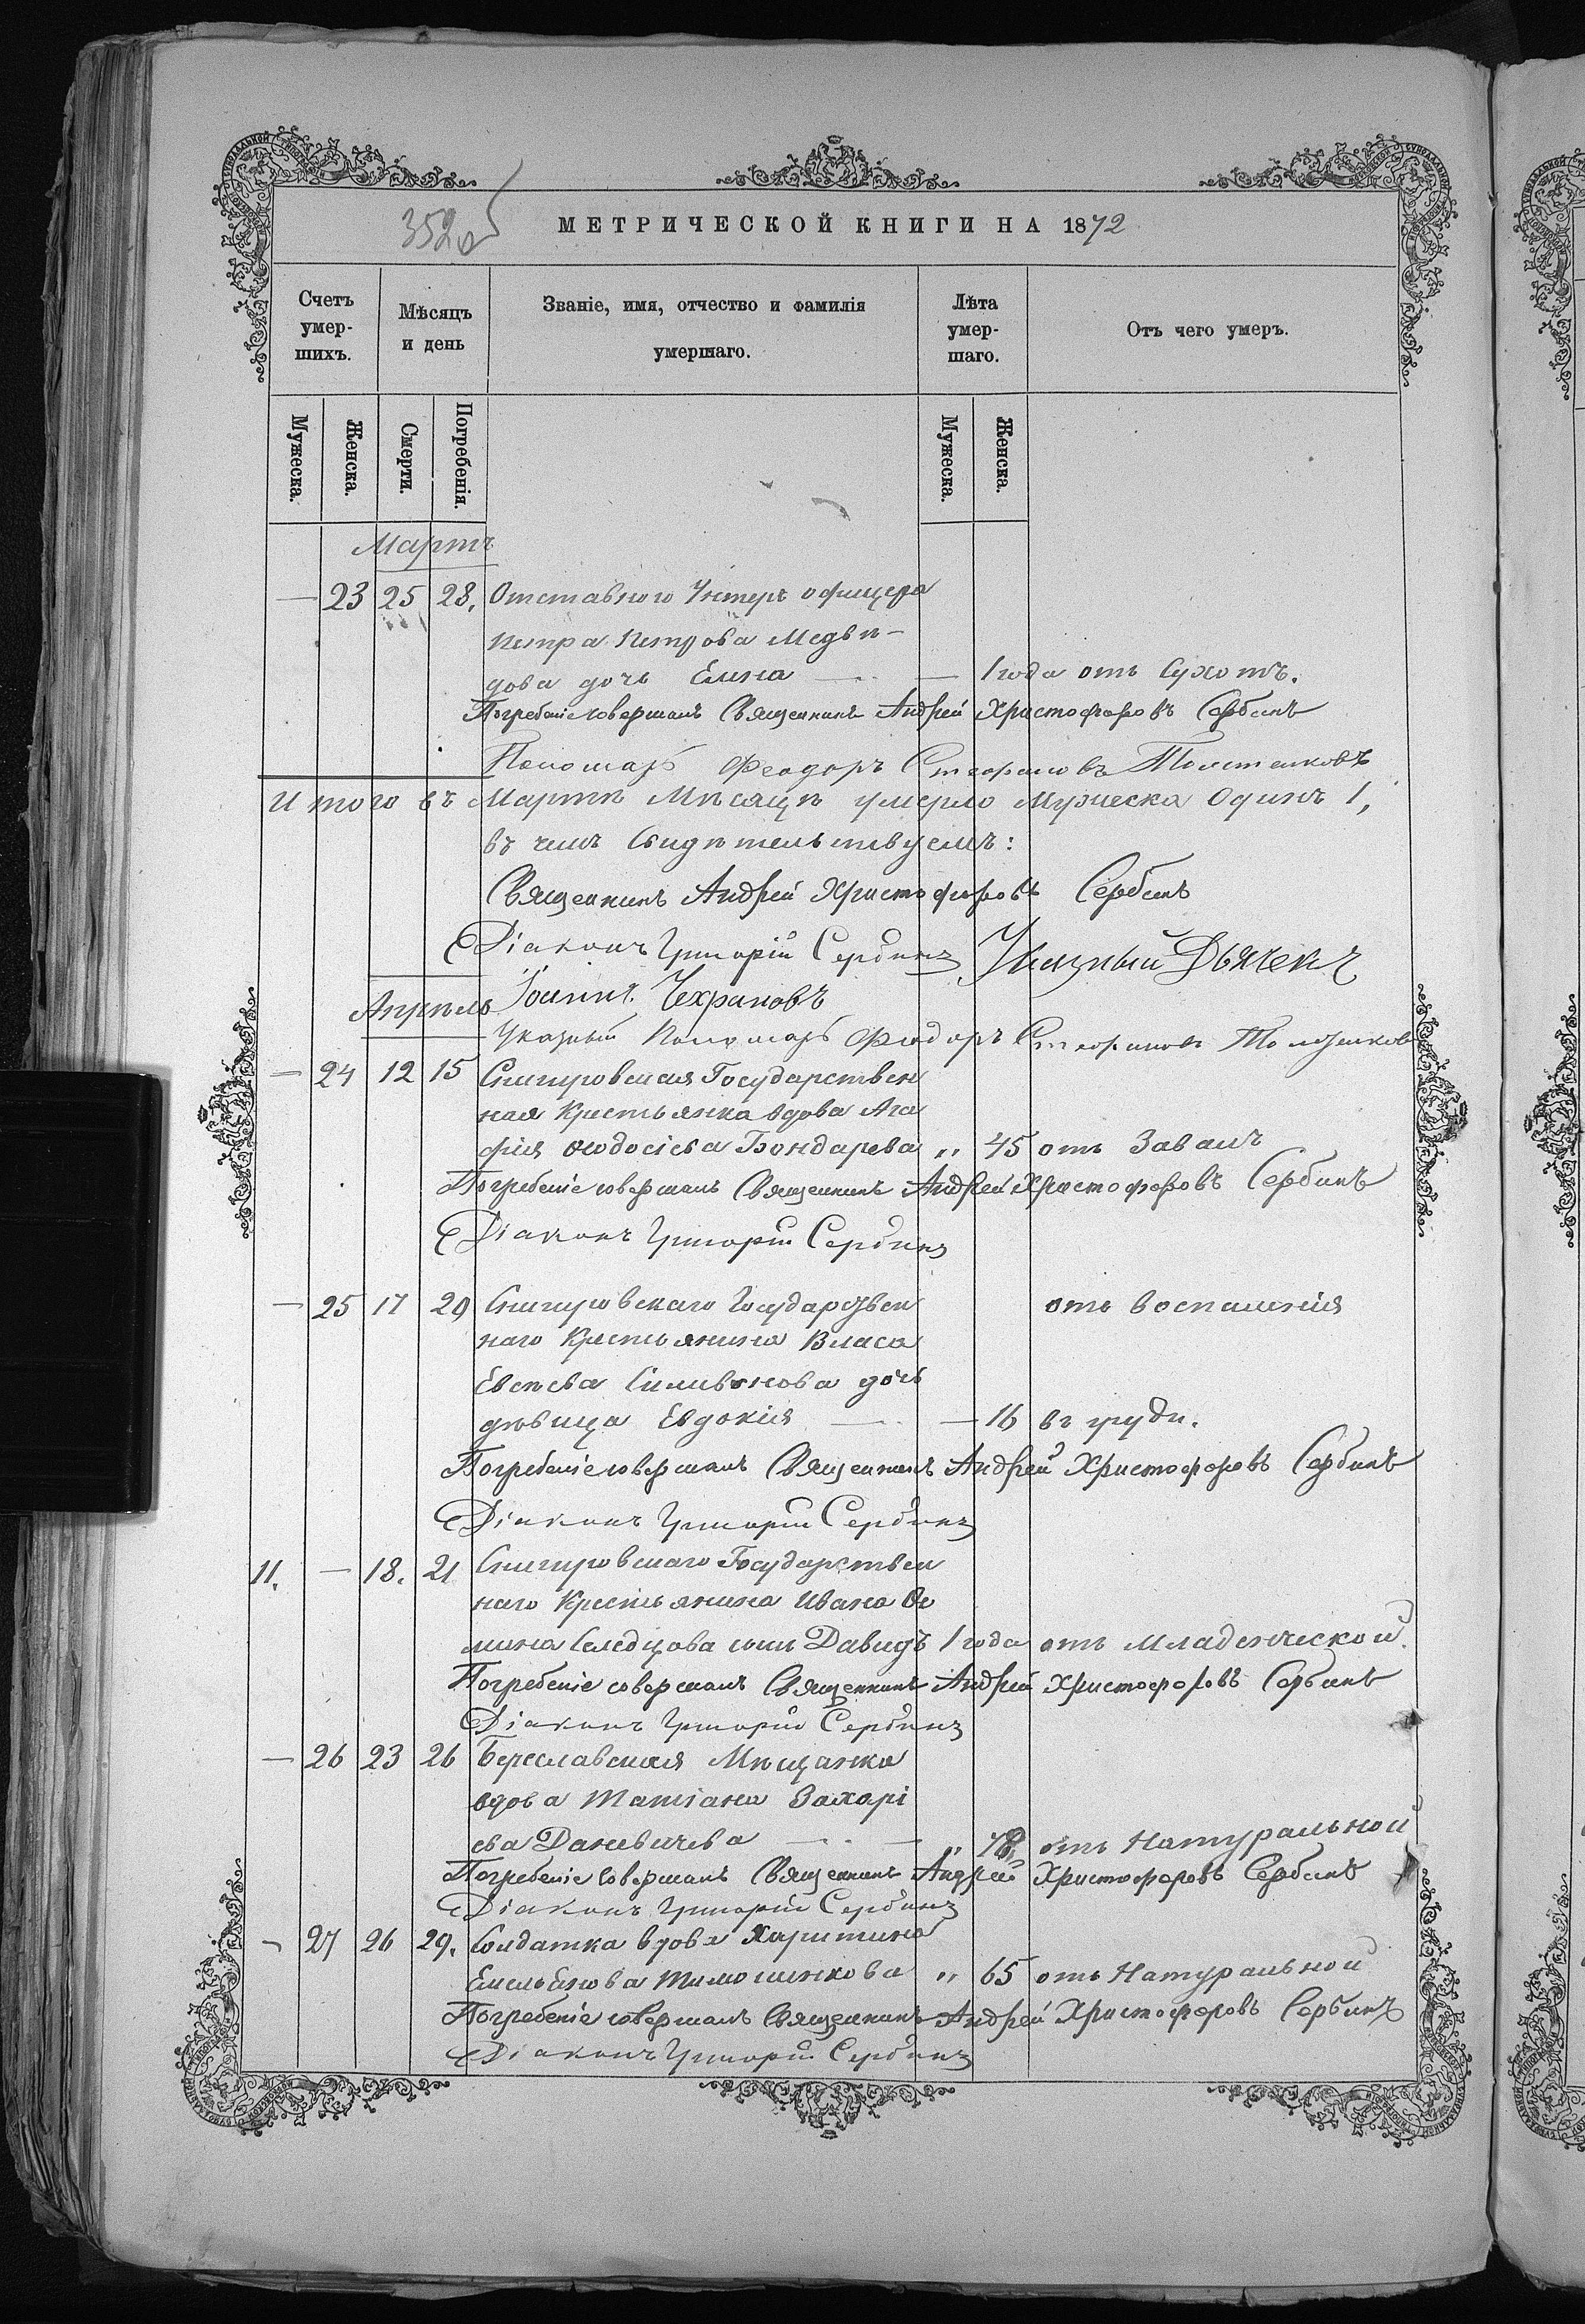 352об
МЕТРИЧЕСКОЙ КНИГИ НА 1872
Счетъ умер-шихъ.
Мѣсяцъ и день
Званіе, имя, отчество и фамилія умершаго.
Лѣта умер-шаго.
Отъ чего умеръ.
Мужеска. Женска. Смерти. Погребенія. Мужеска. Женска.
Мартъ
— 23 25 28. Отставного Унтеръ офицера
Петра Петрова Медвѣ-
дова дочь Елена — — 1 года отъ Сухотъ.
Погребеніе совершалъ Священникъ Андрей Христофоровъ Сербинъ
Пономарь Феодоръ Стефановъ
Итого въ Мартѣ Мѣсяцѣ умерло Мужеска Одинъ 1,
въ чемъ Свидѣтельствуемъ:
Священникъ Андрей Христофоровъ Сербинъ
Діаконъ Григорій Сербинъ Указный Дьячекъ
Іоаннъ Чехрановъ
Апрѣль
Указный Пономарь Феодоръ Стефановъ
— 24 12 15 Снигировская Государствен
ная Крестьянка вдова Ага
фія Ѳеодосіева Бондарева „ 45 отъ Завалъ
Погребеніе совершалъ Священникъ Андрей Христофоровъ Сербинъ
Діаконъ Григорій Сербинъ
— 25 17 20 Снигировскаго Государствен отъ воспаленія
наго Крестьянина Власа
Евсѣева Силивонова дочь
дѣвица Евдокія — — 16 въ груди.
Погребеніе совершалъ Священникъ Андрей Христофоровъ Сербинъ
Діаконъ Григорій Сербинъ
11. — 18. 21 Снигировскаго Государствен
наго Крестьянина Ивана Ѳо
мина сынъ Давидъ 1 года отъ Младенческой.
Погребеніе совершалъ Священникъ Андрей Христофоровъ Сербинъ
Діаконъ Григорій Сербинъ
— 26 23 26 Береславская Мѣщанка
вдова Татіана Захарі
ева Даневичева — „ 78, отъ Натуральной
Погребеніе Совершалъ Священникъ Андрей Христофоровъ Сербинъ
Діаконъ Григорій Сербинъ
— 27 26 29. Солдатка вдова Харитина
Емельянова Тимошенкова „ 65 отъ Натуральной
Погребеніе совершалъ Священникъ Андрей Христофоровъ Сербинъ
Діаконъ Григорій Сербинъ